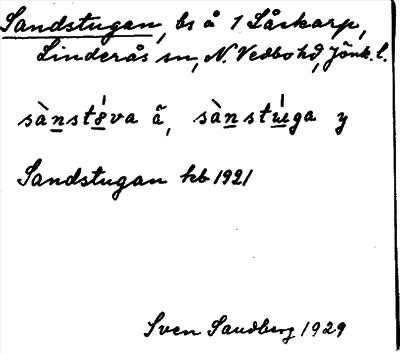 Sandstugan, bs å 1 Låskarp,
Linderås sn, N. Vedbo hd, Jönk. l.
sàn̲st8̲́va ä, sàn̲stú̲ga y
Sandstugan kb 1921
Sven Sandberg 1929